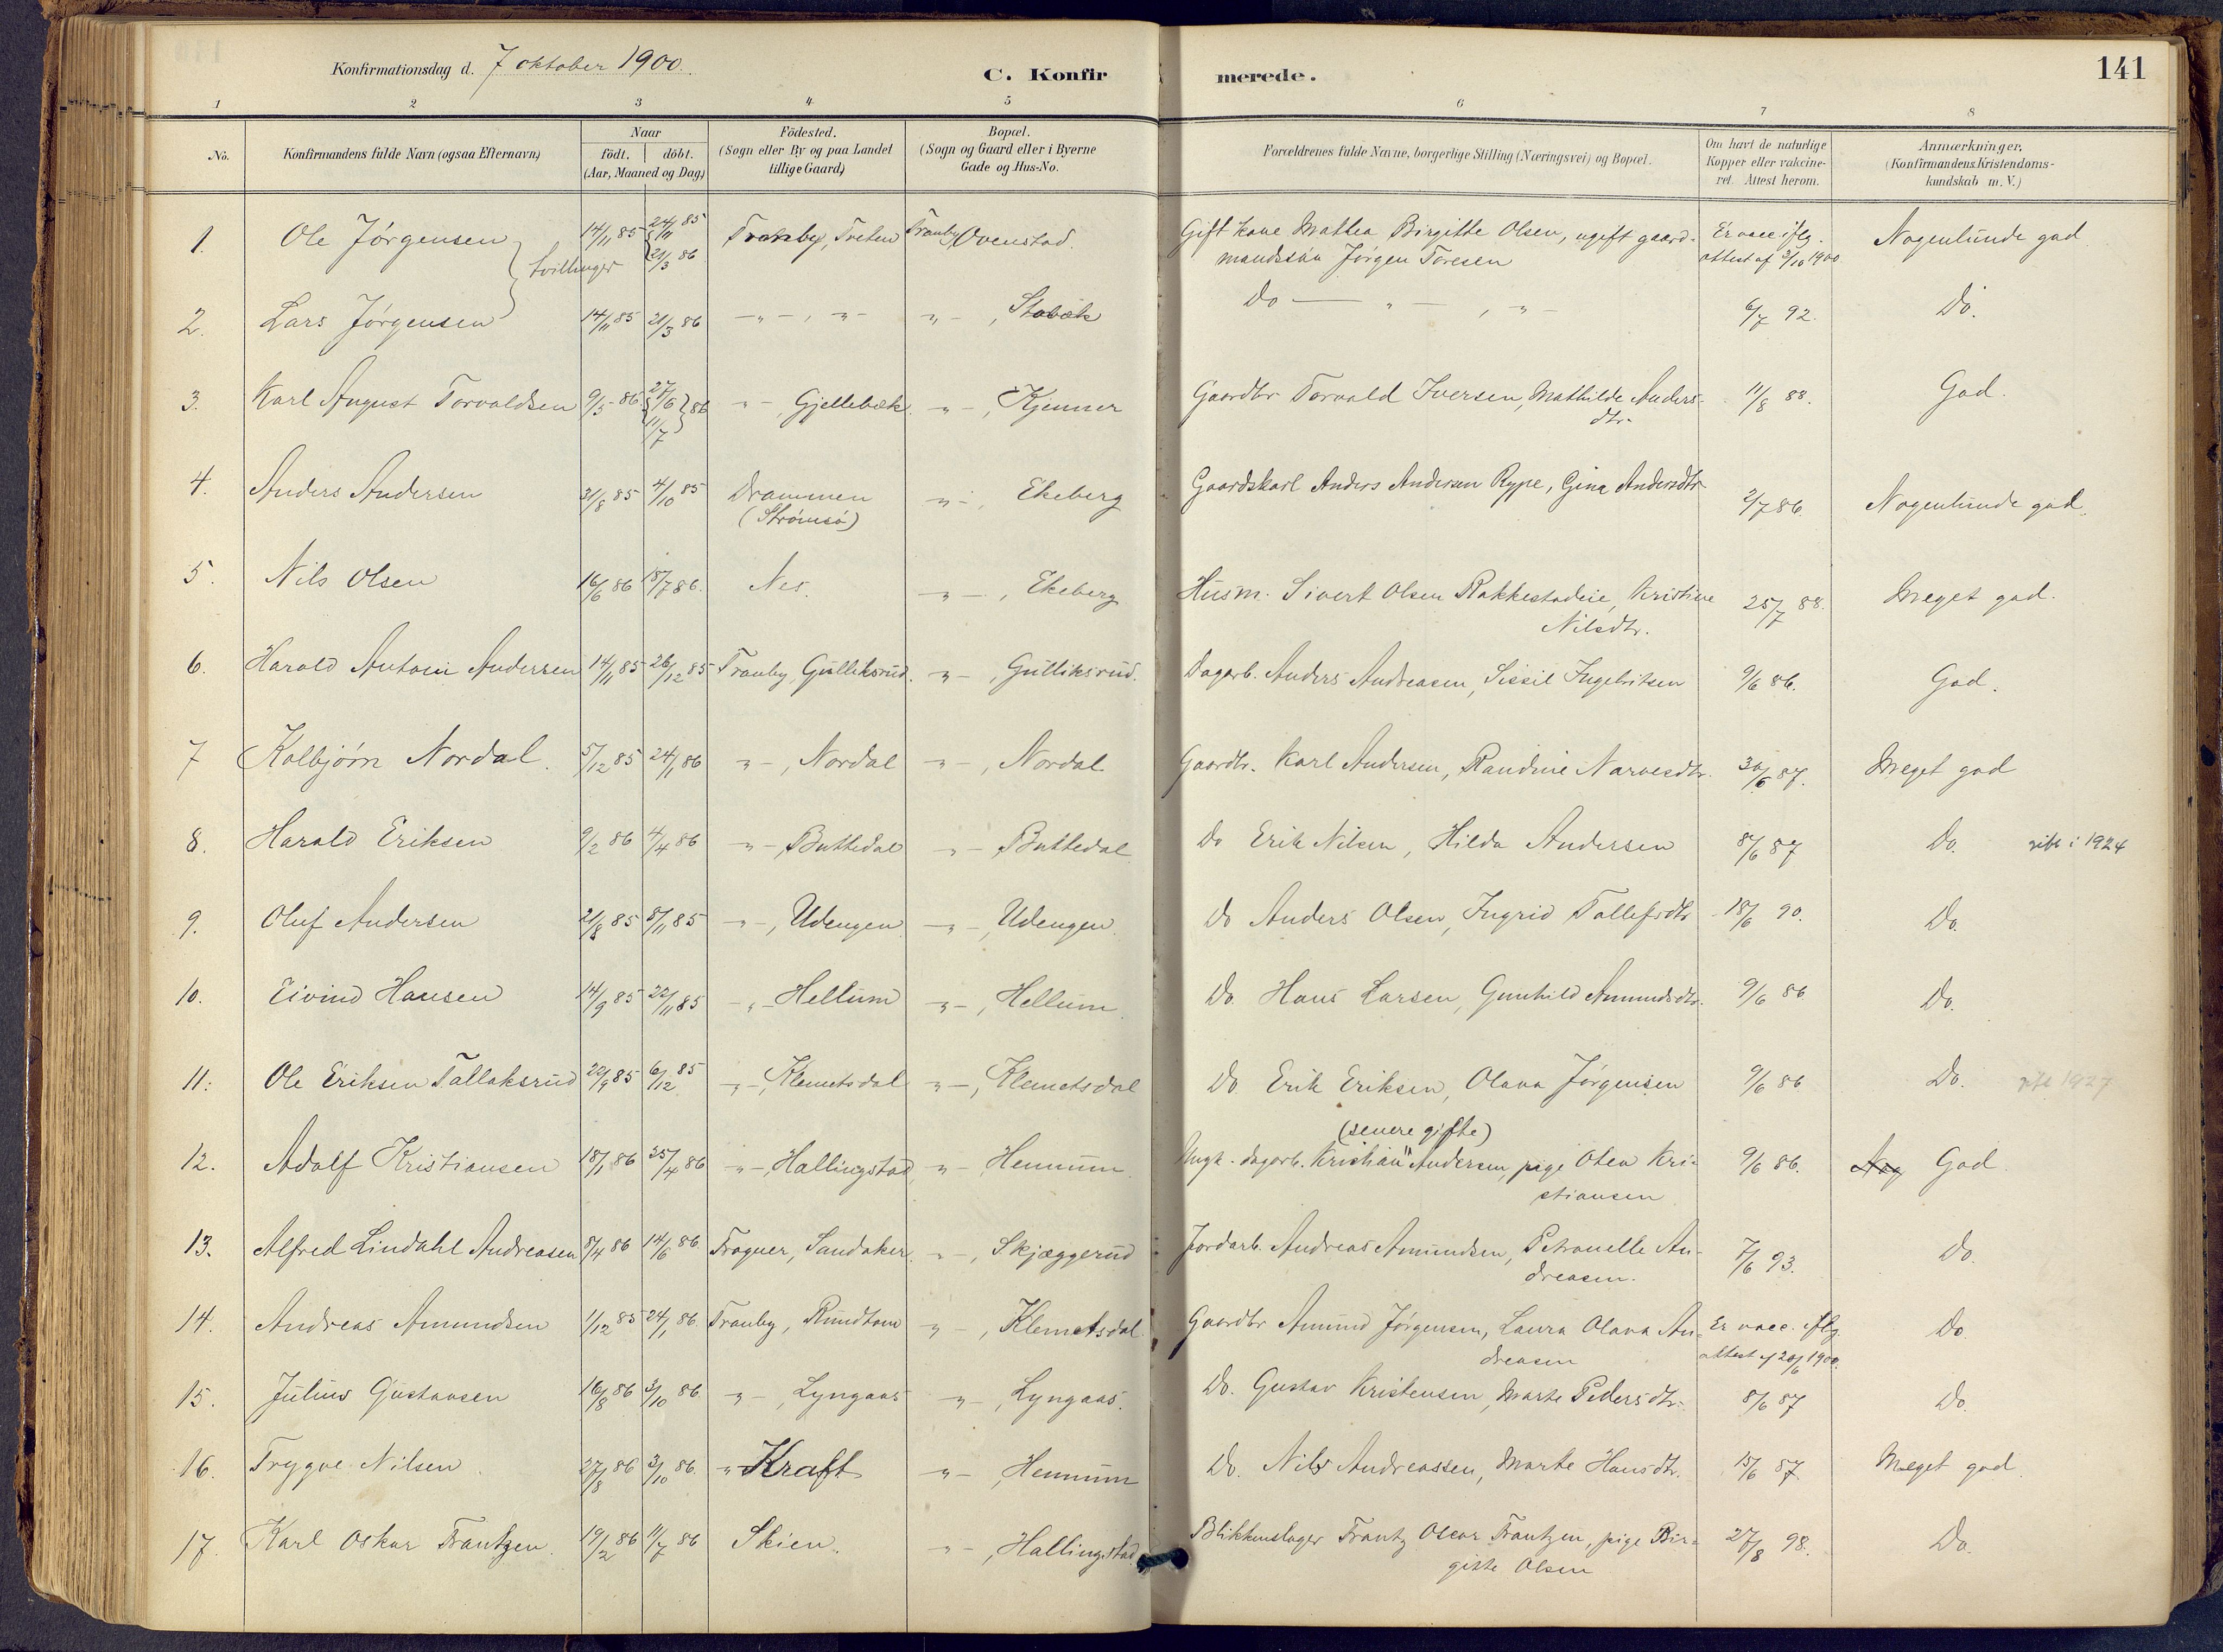 Konfirmationsdag d. 7 oktober 1900. C. Konfirmerede. 141
1 2 3 4 5 6 7 8
No. Konfirmandens fulde Navn (ogsaa Efternavn) Naar födt. döbt. (Aar, Maaned og Dag) Födested. (Sogn eller By og paa Landet tillige Gaard) Bopæl. (Sogn og Gaard eller i Byerne Gade og Hus-No. Forældrenes fulde Navne, borgerlige Stilling (Næringsvei) og Bopæl. Om havt de naturlige Kopper eller vakcineret. Attest herom. Anmærkninger. (Konfirmandens Kristendomskundskab m. V.)
1. Ole Jörgensen 14/11 85 24/11 85 21/3 86 Tranby, Treten Tranby, Ovenstad. Gift kone Mathea Birgitte Olsen, ugift gaard- Er vacc. iflg. Nogenlunde god
tvillinger mandssön Jörgen Toresen attest af 3/10 1900
2. Lars Jörgensen 14/11 85 21/3 86 - " - , " - " - , Stabæk Do - " - , " - 6/7 92. Do.
3. Karl August Torvaldsen 9/5 86 27/6 11/7 86 " - , Gjellebæk " - , Kjenner Gaardbr Torvald Iversen, Mathilde Anders- 11/8 88. God.
dtr.
4. Anders Andersen 31/8 85 4/10 85 Drammen " - , Ekeberg Gaardskarl Anders Andersen Rype, Gina Andersdtr 2/7 86. Nogenlunde god.
(Strömsö)
5. Nils Olsen 16/6 86 18/7 86. Nes. " - , Ekeberg Husm. Sivert Olsen Rakkestadeie, Kristine 25/7 88. Meget god.
Nilsdtr.
6. Harald Antoni Andersen 14/11 85 26/12 85 Tranby, Gulliksrud. " - , Gulliksrud. Dagarb. Anders Andreasen, Sissil Ingebritsen 9/6 86. God.
7 Kolbjörn Nordal. 5/12 85 24/1 86 " - , Nordal " - , Nordal Gaardbr. Karl Andersen, Randine Narvesdtr. 30/6 87. Meget god
8. Harald Eriksen 9/2 86 4/4 86 " - , Buttedal " - Buttedal Do Erik Nilsen, Hilda Andersen 8/6 87 Do. vibe i 1924
9. Oluf Andersen 21/8 85 8/11 85 " - , Udengen " - , Udengen Do Anders Olsen, Ingrid Tollefsdtr 18/6 90. Do.
10. Eivind Hansen 14/9 85 22/11 85 " - Hellum " - , Hellum. Do. Hans Larsen, Gunhild Amundsdtr. 9/6 86 Do.
11. Ole Eriksen Tallaksrud 22/9 85 6/12 85 " - , Klemetsdal " - , Klemetsdal Do. Erik Eriksen, Olava Jörgensen 9/6 86 Do. 1927
(senere gifte)
12. Adolf Kristiansen 18/1 86 25/4 86 " - , Hallingstad " - , Hennum. Ungk. dagarb. Kristian Andersen, pige Oten Kri- 9/6 86. Nog God.
stiansen
13. Alfred Lindahl Andreasen 8/4 86 14/6 86 Frogner, Sandaker. " - , Skjæggerud Jordarb. Andreas Amundsen, Petronelle An- 7/6 93. Do.
dreasen.
14. Andreas Amundsen 1/12 85 24/1 86. Tranby, Rundtom " - , Klemetsdal. Gaardbr Amund Jörgensen, Laura Olava An- Er vacc. iflg. Do.
dreasen attest af 20/6 1900.
15. Julius Gustavsen 16/8 86 3/10 86 " - , Lyngaas " - , Lyngaas. Do. Gustav Kristensen, Marte Pedersdtr. 8/6 87 Do.
16. Trygve Nilsen 27/8 86 3/10 86. " Kraft " - , Hennum Do. Nils Andreassen, Marte Hansdtr. 15/6 87. Meget god.
17. Karl Oskar Frantzen. 19/2 86 11/7 86 Skien. " - , Hallingstad Blikkenslager Frantz Oscar Frantzen, pige Bir- 27/8 98. Do.
gitte Olsen